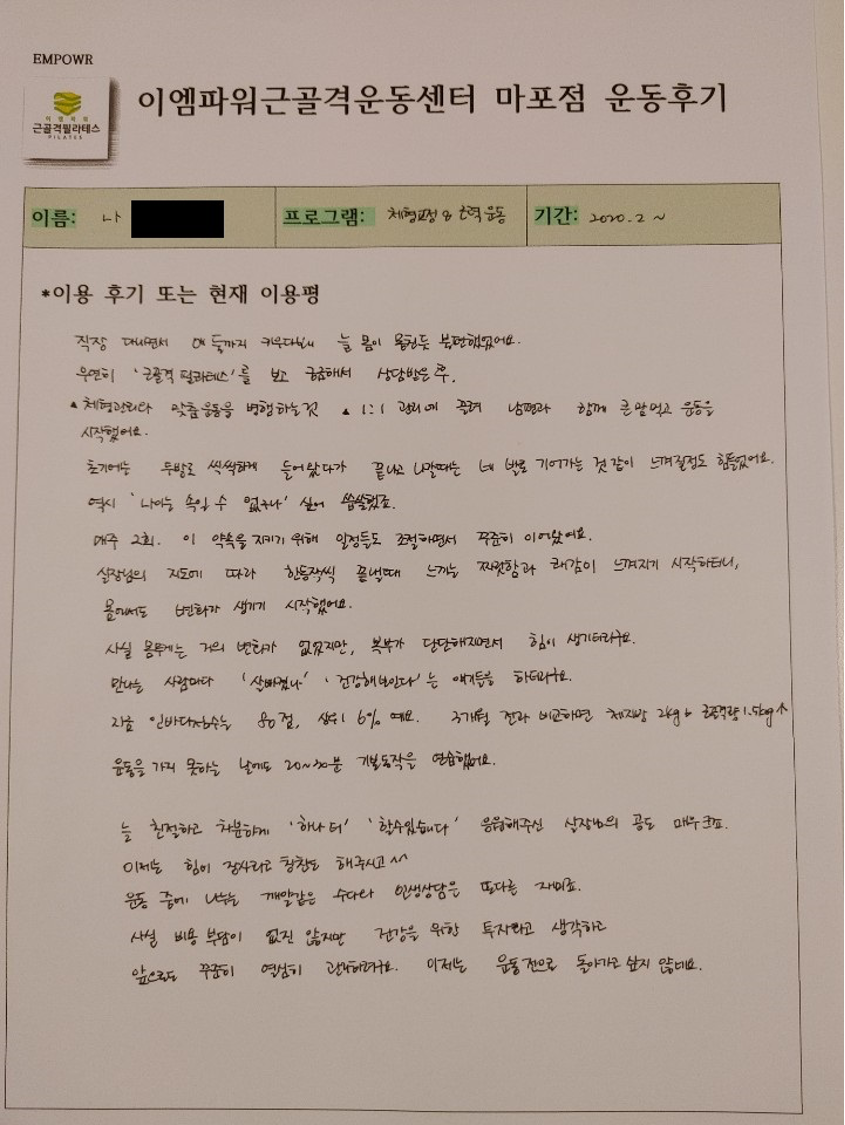 EMPOWR
이엠파워
근골격필라테스
PILATES
이엠파워근골격운동센터 마포점 운동후기
이름: 나
프로그램: 체형교정 & 근력운동
기간: 2020. 2 ~
*이용 후기 또는 현재 이용평
직장 다니면서 애 둘까지 키우다보니 늘 몸이 뭉친듯 불편했었어요.
우연히 '근골격 필라테스'를 보고 궁금해서 상담받은 후,
▲ 체형관리와 맞춤운동을 병행하는 것 ▲ 1:1 관리에 끌려 남편과 함께 큰 맘 먹고 운동을
시작했어요.
초기에는 두발로 씩씩하게 들어왔다가 끝나고 나갈때는 네 발로 기어가는 것 같이 느껴질정도 힘들었어요.
역시 '나이는 속일 수 없구나' 싶어 씁쓸했죠.
매주 2회. 이 약속을 지키기 위해 일정들도 조절하면서 꾸준히 이어왔어요.
실장님의 지도에 따라 한동작씩 끝낼때 느끼는 짜릿함과 쾌감이 느껴지기 시작하더니,
몸에서도 변화가 생기기 시작했어요.
사실 몸무게는 거의 변화가 없었지만, 복부가 단단해지면서 힘이 생기더라구요.
만나는 사람마다 '살빠졌나' '건강해보인다'는 얘기들을 하더라구요.
지금 인바디점수는 80점, 상위 6% 예요. 3개월 전과 비교하면 체지방 2kg↓ 근골격량 1.5kg↑
운동을 가지 못하는 날에도 20~30분 기본동작을 연습했어요.
늘 친절하고 차분하게 '하나 더' '할수있습니다' 응원해주신 실장님의 공도 매우 크죠.
이제는 힘이 장사라고 칭찬도 해주시고^^
운동 중에 나누는 깨알같은 수다와 인생상담은 또다른 재미죠.
사실 비용 부담이 없진 않지만 건강을 위한 투자라고 생각하고
앞으로도 꾸준히 열심히 관리하려구요. 이제는 운동 전으로 돌아가고 싶지 않네요.